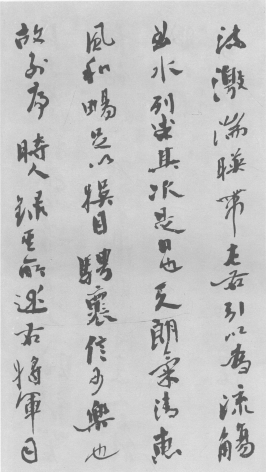 流激湍暎帶左右引以為流觴
曲水列坐其次是日也天朗氣清惠
風和暢足以娛目騁懷信可樂也
故列序時人錄其所述右將軍司